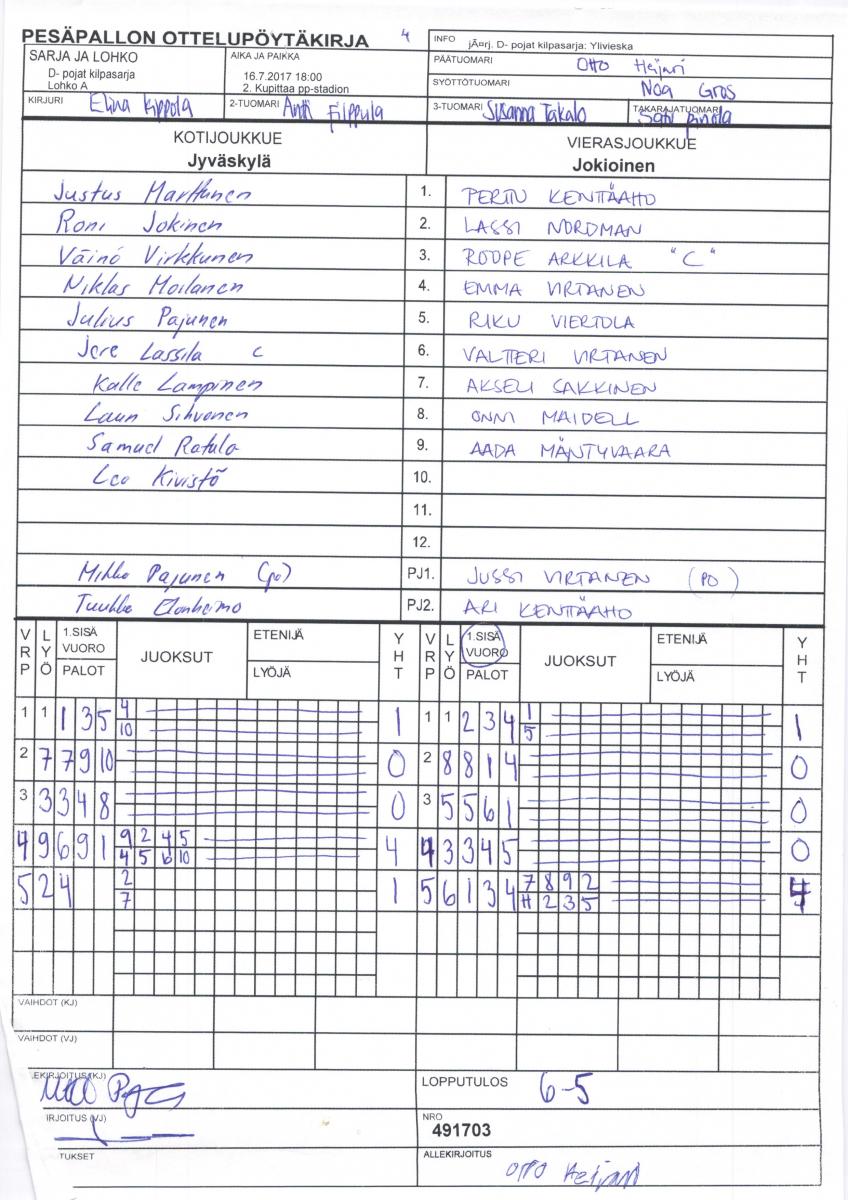 PESÄPALLON OTTELUPÖYTÄKIRJA 4
INFO jÃ¤rj. D- pojat kilpasarja: Ylivieska
SARJA JA LOHKO
D- pojat kilpasarja
Lohko A
AIKA JA PAIKKA
16.7.2017 18:00
2. Kupittaa pp-stadion
PÄÄTUOMARI Otto Heijari
SYÖTTÖTUOMARI Noa Gros
KIRJURI Elina Kippola
2-TUOMARI Antti Filppula
3-TUOMARI Susanna Takalo
TAKARAJATUOMARI
KOTIJOUKKUE
Jyväskylä
VIERASJOUKKUE
Jokioinen
Justus Marttunen 1. PERTTU KENTTÄAHO
Roni Jokinen 2. LASSI NORDMAN
Väinö Virkkunen 3. ROOPE ARKKILA "C"
Niklas Moilanen 4. EMMA VIRTANEN
Julius Pajunen 5. RIKU VIERTOLA
Jere Lassila C 6. VALTTERI VIRTANEN
Kalle Lampinen 7. AKSELI SAKKINEN
Lauri Sihvonen 8. ONNI MAIDELL
Samuel Ratula 9. AADA MÄNTYVAARA
Leo Kivistö 10.
11.
12.
Mikko Pajunen (po) PJ1. JUSSI VIRTANEN (PO)
Tuukka PJ2. ARI KENTTÄAHO
VRP LYÖ 1.SISÄ VUORO PALOT JUOKSUT ETENIJÄ LYÖJÄ YHT VRP LYÖ 1.SISÄ VUORO PALOT JUOKSUT ETENIJÄ LYÖJÄ YHT
1 1 1 3 5 4 1 1 1 2 3 4 1 1
10 5
2 7 7 9 10 0 2 8 8 1 4 0
3 3 3 4 8 0 3 5 5 6 1 0
4 9 6 9 1 9 2 4 5 4 4 3 3 4 5 0
4 5 6 10
5 2 4 2 1 5 6 1 3 4 7 8 9 2 4
7 H 2 3 5
VAIHDOT (KJ)
VAIHDOT (VJ)
EKIRJOITUS (KJ)
LOPPUTULOS 6-5
IRJOITUS (VJ)
NRO
491703
TUKSET
ALLEKIRJOITUS Otto Heijari